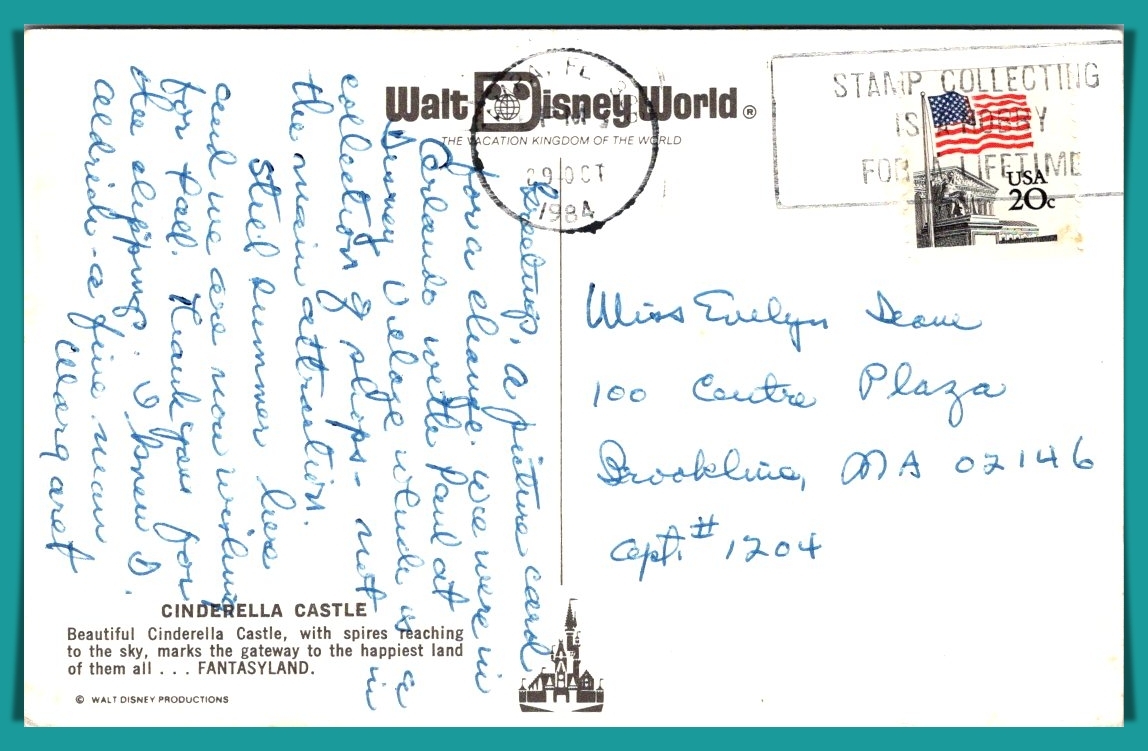 Walt Disney World ®
THE VACATION KINGDOM OF THE WORLD
FL
29 OCT
1984
STAMP COLLECTING
IS A HOBBY
FOR A LIFETIME
USA
20c
Greetings, a picture card
for a change. We were in
Orlando with Paul at
Disney Village which is a
collection of shops - not in
the main attraction.
Still summer here
and we are now wishing
for Fall. Thank you for
the clipping. I knew D.
Aldrich - a fine man
Margaret
Miss Evelyn Deane
100 Centre Plaza
Brookline, MA 02146
Apt. # 1204
CINDERELLA CASTLE
Beautiful Cinderella Castle, with spires reaching
to the sky, marks the gateway to the happiest land
of them all . . . FANTASYLAND.
© WALT DISNEY PRODUCTIONS